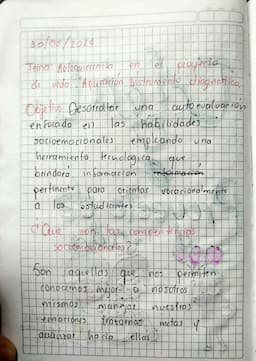 30/05/2024
Tema: Autoconciencia en el proyecto
de vida "Aplicación Instrumento diagnóstico
Objetivo: Desarrollar una autoevaluación
enfocado en las habilidades
socioemocionales empleando una
herramienta tecnologica que
brindara información
pertinente para orientar vocacionalmente
a los estudiantes
¿Que son las competencias
socioemocionales?
Son aquellas que nos permiten
conocernos mejor a nosotros
mismos manejar nuestras
emociones trazarnos metas y
avanzar hacia ellas